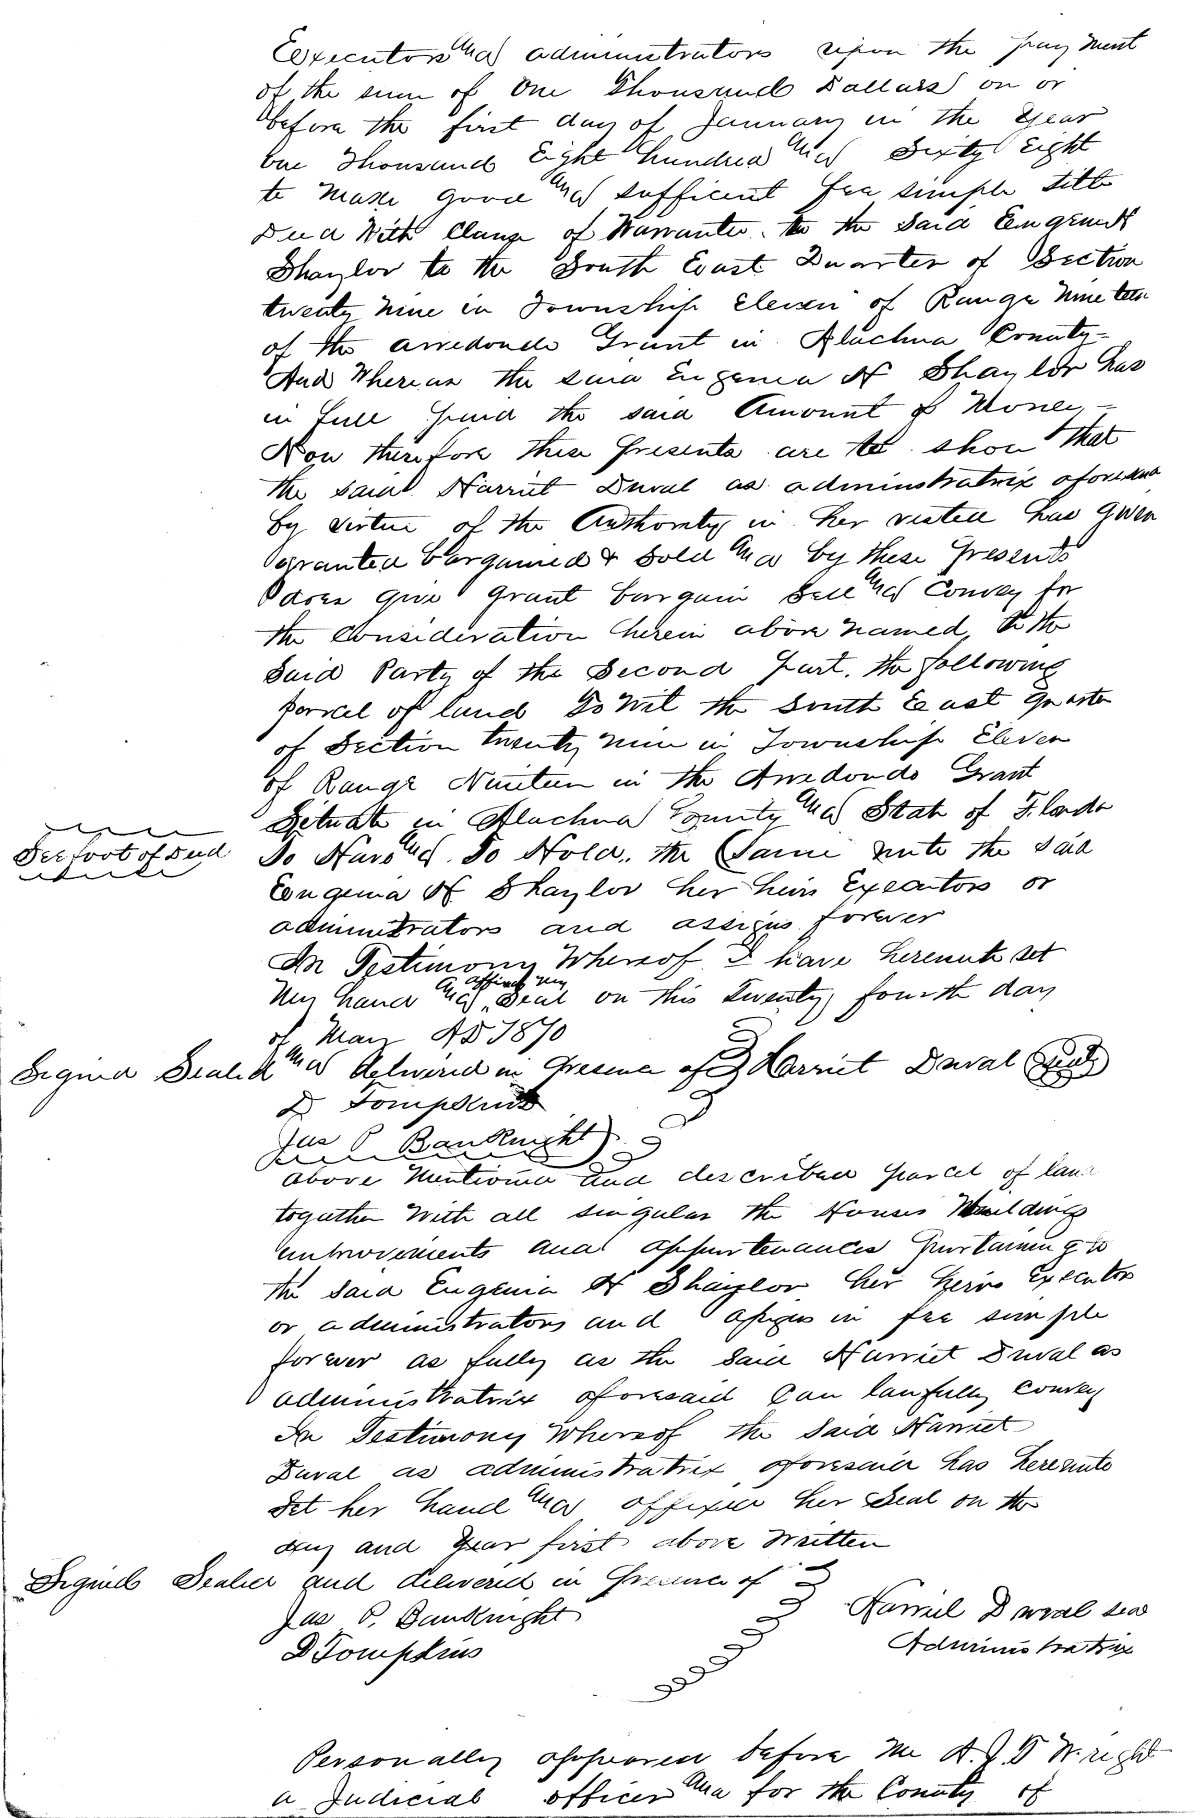 Executors and administrators upon the payment
of the sum of One Thousand Dollars on or
before the first day of January in the Year
One Thousand Eight hundred and Sixty Eight
to Make good and sufficient fee simple title
Deed With Clause of Warrantee to the Said
Shaylor to the South East Quarter of Section
twenty nine in Township Eleven of Range Nineteen
of the arredondo Grant in Alachua County-
And Whereas the said Eugenia H Shaylor has
in full paid the said Amount of Money-
Now therefore these presents are to show that
the said Harriet Duval as administratrix aforesaid
by virtue of the Authority in her vested has given
granted bargained & Sold and by these presents
does give grant bargain Sell and Convey for
the Consideration herein above named, to the
Said Party of the Second part, the following
parcel of land To Wit the South East quarter
of Section twenty nine in Township Eleven
of Range Nineteen in the Arredondo Grant
Situate in Alachua County and State of Florida
See foot of Deed
To Have and To Hold, the Same unto the said
Eugenia H Shaylor her heirs Executors or
administrators and assigns forever
In Testimony Whereof I have hereunto set
My hand and affixed my Seal on this Twenty fourth day
of May AD 1870
Signed Sealed and delivered in Presence of Harriet Duval Seal
D Tompkins
Jas P Bauknight
above Mentioned and described parcel of land
together With all singular the Houses Buildings
improvements and appurtenances pertaining to
the said Eugenia H Shaylor her heirs Executors
or administrators and assigns in fee simple
forever as fully as the Said Harriet Duval as
administratrix aforesaid Can lawfully convey
In Testimony Whereof the Said Harriet
Duval as administratrix aforesaid has hereunto
Set her hand and affixed her Seal on the
day and Year first above Written
Signed Sealed and delivered in Presence of
Jas P. Bauknight
Harriet Duval seal
D Tompkins
Administratrix
Personally appeared before Me A. J T Wright
a Judicial officer and for the County of